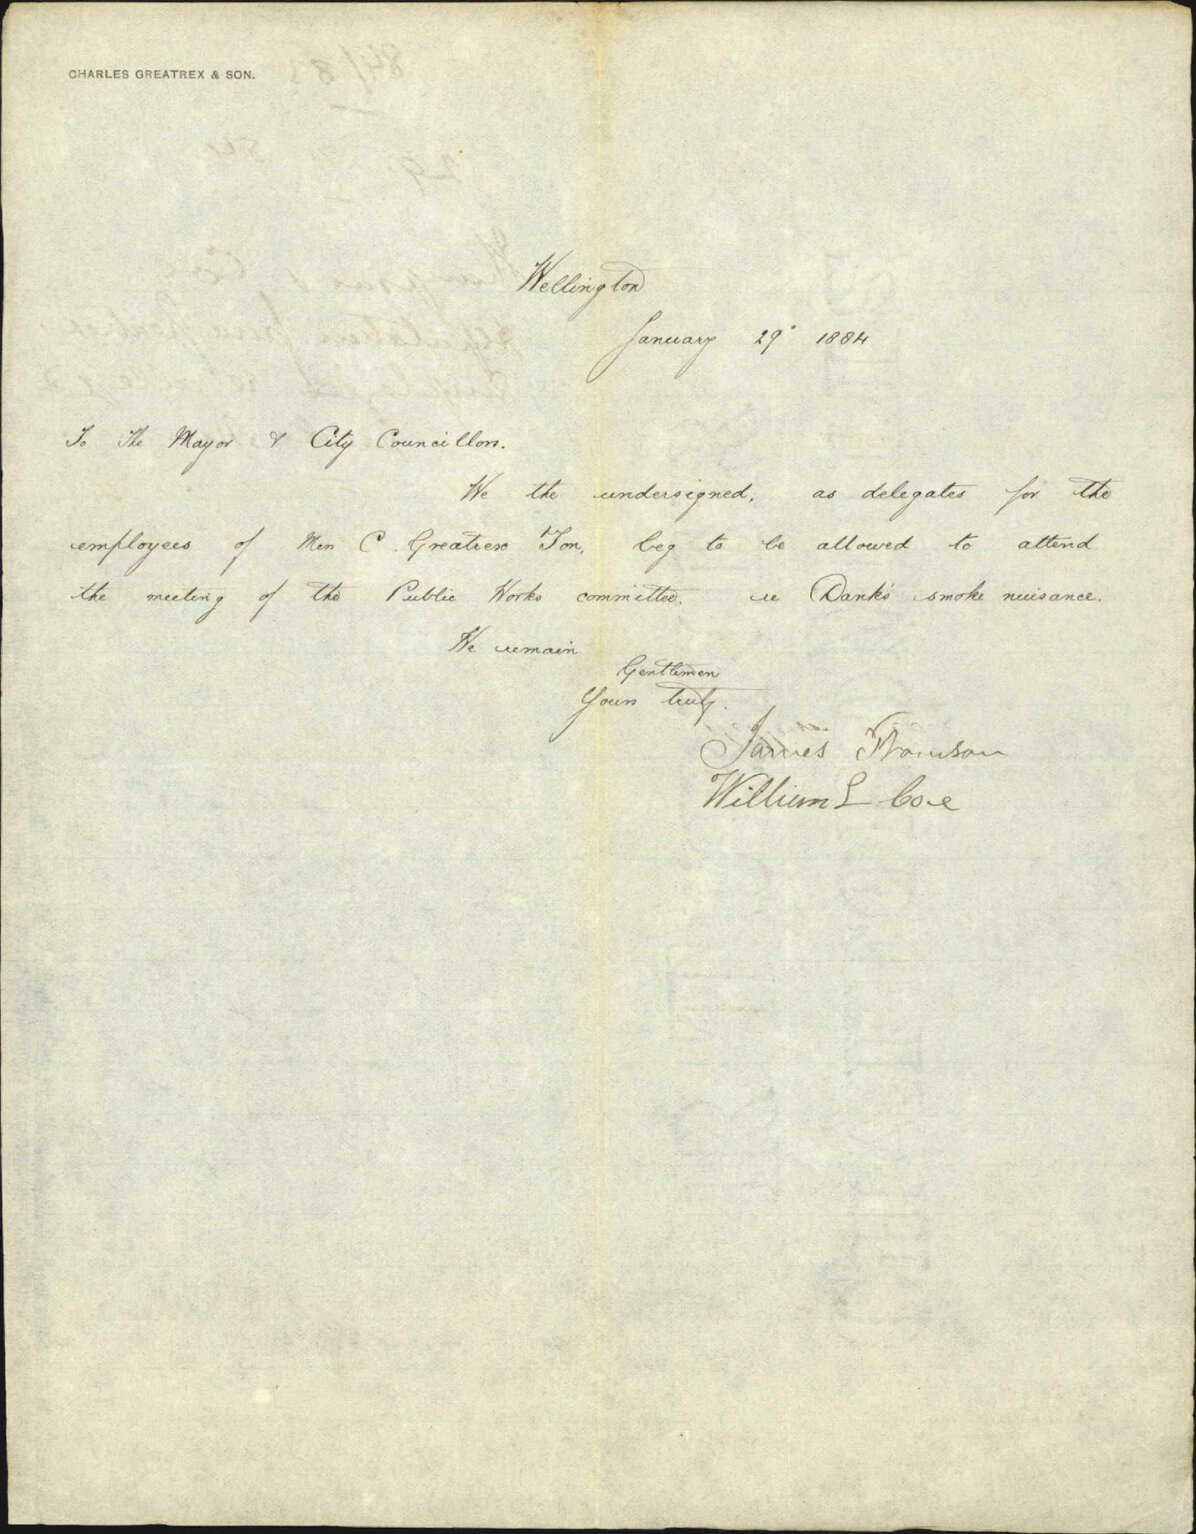 CHARLES GREATREX & SON.
Wellington
January 29° 1884
To The Mayor & City Councillors.
We the undersigned, as delegates for the
employees of Mess C. Greatrex Son, beg to be allowed to attend
the meeting of the Public Works committee. re Dank's smoke nuisance.
We remain
Gentlemen
Yours truly.
James Thomson
William L Coxe